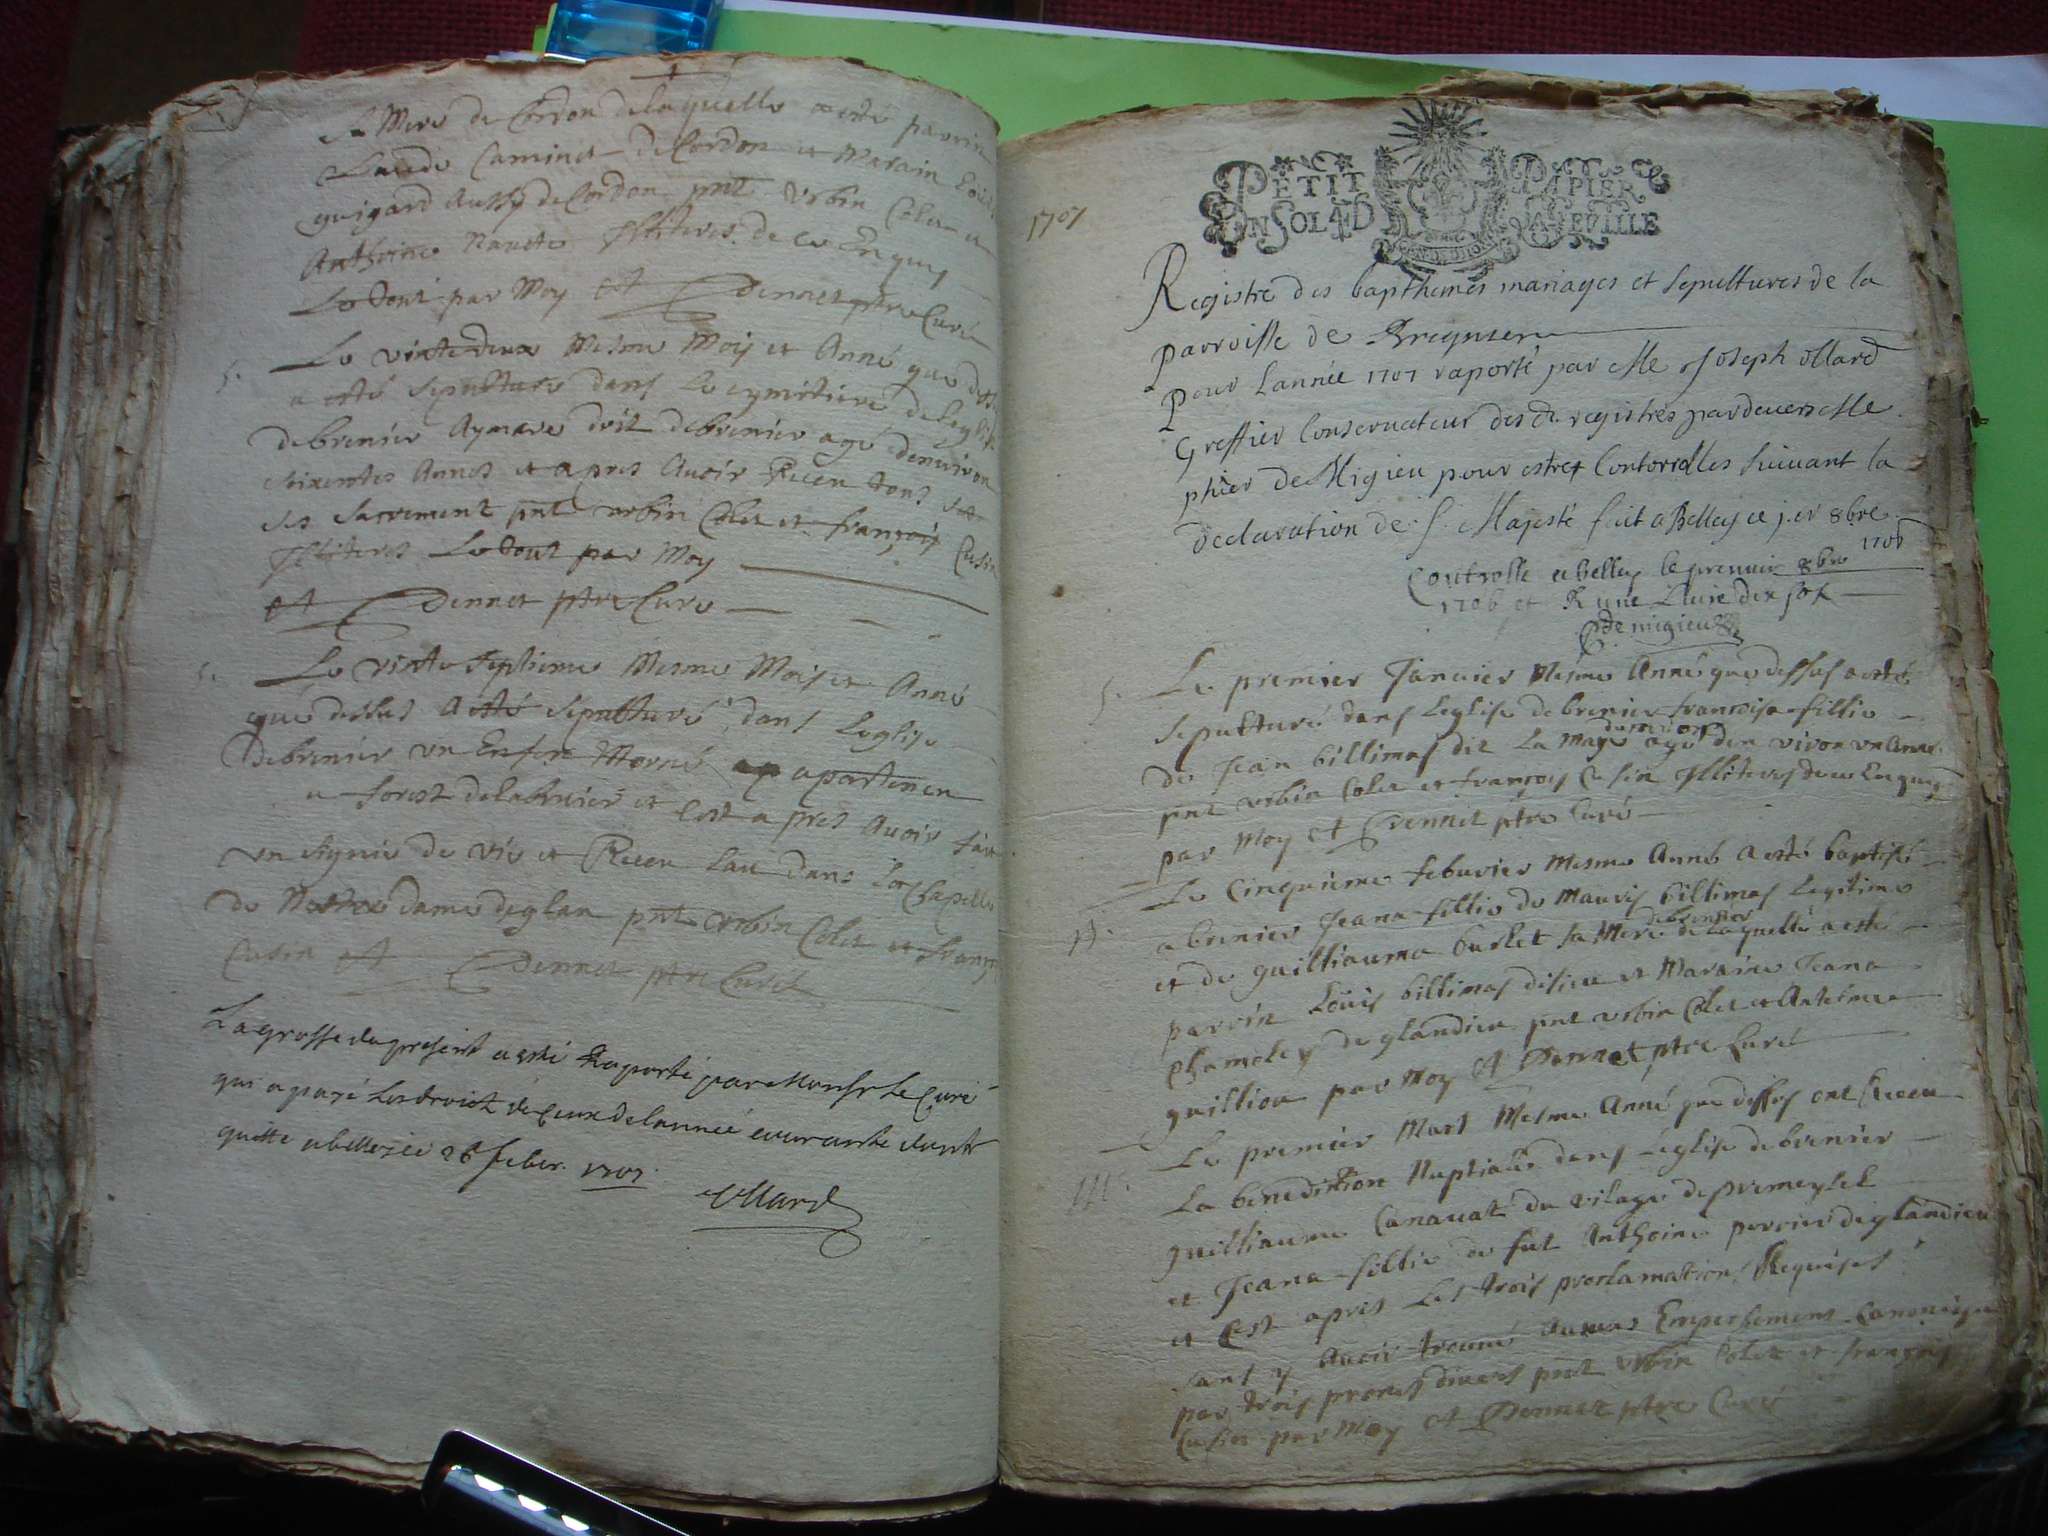 sa Mere de Cordon de laquelle a esté parrin
Claude Caminet de Cordon et Marain Loui
guigard Aussy de Cordon pnt Urbin Colet et
Anthoine Illiteres de ce Enquis
Le tout par Moy Dennet ptre Curé
S. Le vinte deux Mesme Moy et Anné que dess
a esté sepulturé dans le cymitiere de leglise
de brenier Aymare droit de brenier agé denviron
soixentes Annes et apres Avoir Receu tous
ses sacrement pnt urbin Colet et françois Cusin
Illiteres Le tout par Moy
Dennet ptre Curé
S. Le vinte septieme Mesme Moys et Anné
que dessus A esté sepulturé dans Leglise
de brenier un Enfan Morné apartenen
a forest de la brnier et cest a pres Avoir fait
un signie de vie et Receu Lau dans la Chapelle
de Nostre dame deglan pnt urbin Colet et franço
Cusin Dennet ptre Curé
La grosse du present a esté Raporté par Monsr le Curé
qui a payé les droict de ceux de lannée courante dont
quitte a belley ce 26 feber. 1707
Ollard
1707
PETIT PAPIER
UN SOL 4 D LA FEUILLE
Registre des bapthemes mariages et sepultures de la
parroisse de Breynier
Pour Lannée 1707 raporté par Me Joseph Ollard
Greffier Conservateur des d. registres pardevers Me
phier De Migieu pour estre Controrolles suivant la
declaration de S. Majesté fait a Belley ce j.er 8bre
1706
Controllé a Belley le premier 8bre
1706 et R une Livre dix sols
De migieu
S. Le premier Janvier Mesme Anné que dessus a esté
sepulturé dans leglise de brenier françoise fillie
de Jean billimas dit La May agé den viron un Anné
pnt urbin Colet et françois Cusin Illiteres de ce Enquis
par Moy Dennet ptre Curé
B. Le Cinquieme feburier Mesme Anné a esté baptisé
a brenier Jeana fillie de Mauris billimas Legitime
de brenier
et de guilliauma burlet sa Mere de laquelle a esté
parrin Louis billimas de sieu et Maraine Jeana
Chamoley de glandieu pnt urbin Colet et Antelme
guillion par Moy Dennet ptre Curé
M. Le premier Mars Mesme Anné que dessus ont Receu
La benediction Nuptiale dans Leglise de brenier
guilliaume Canavat du vilage de premeysel
et Jeana fillie de fut Anthoine perrier de glandieu
et cest apres Les trois proclamations Requises
sans y Avoir trouvé Aucuns Empeschemens Canonique
par trois prones divers pnt urbin Colet et françois
Cusin par Moy Dennet ptre Curé